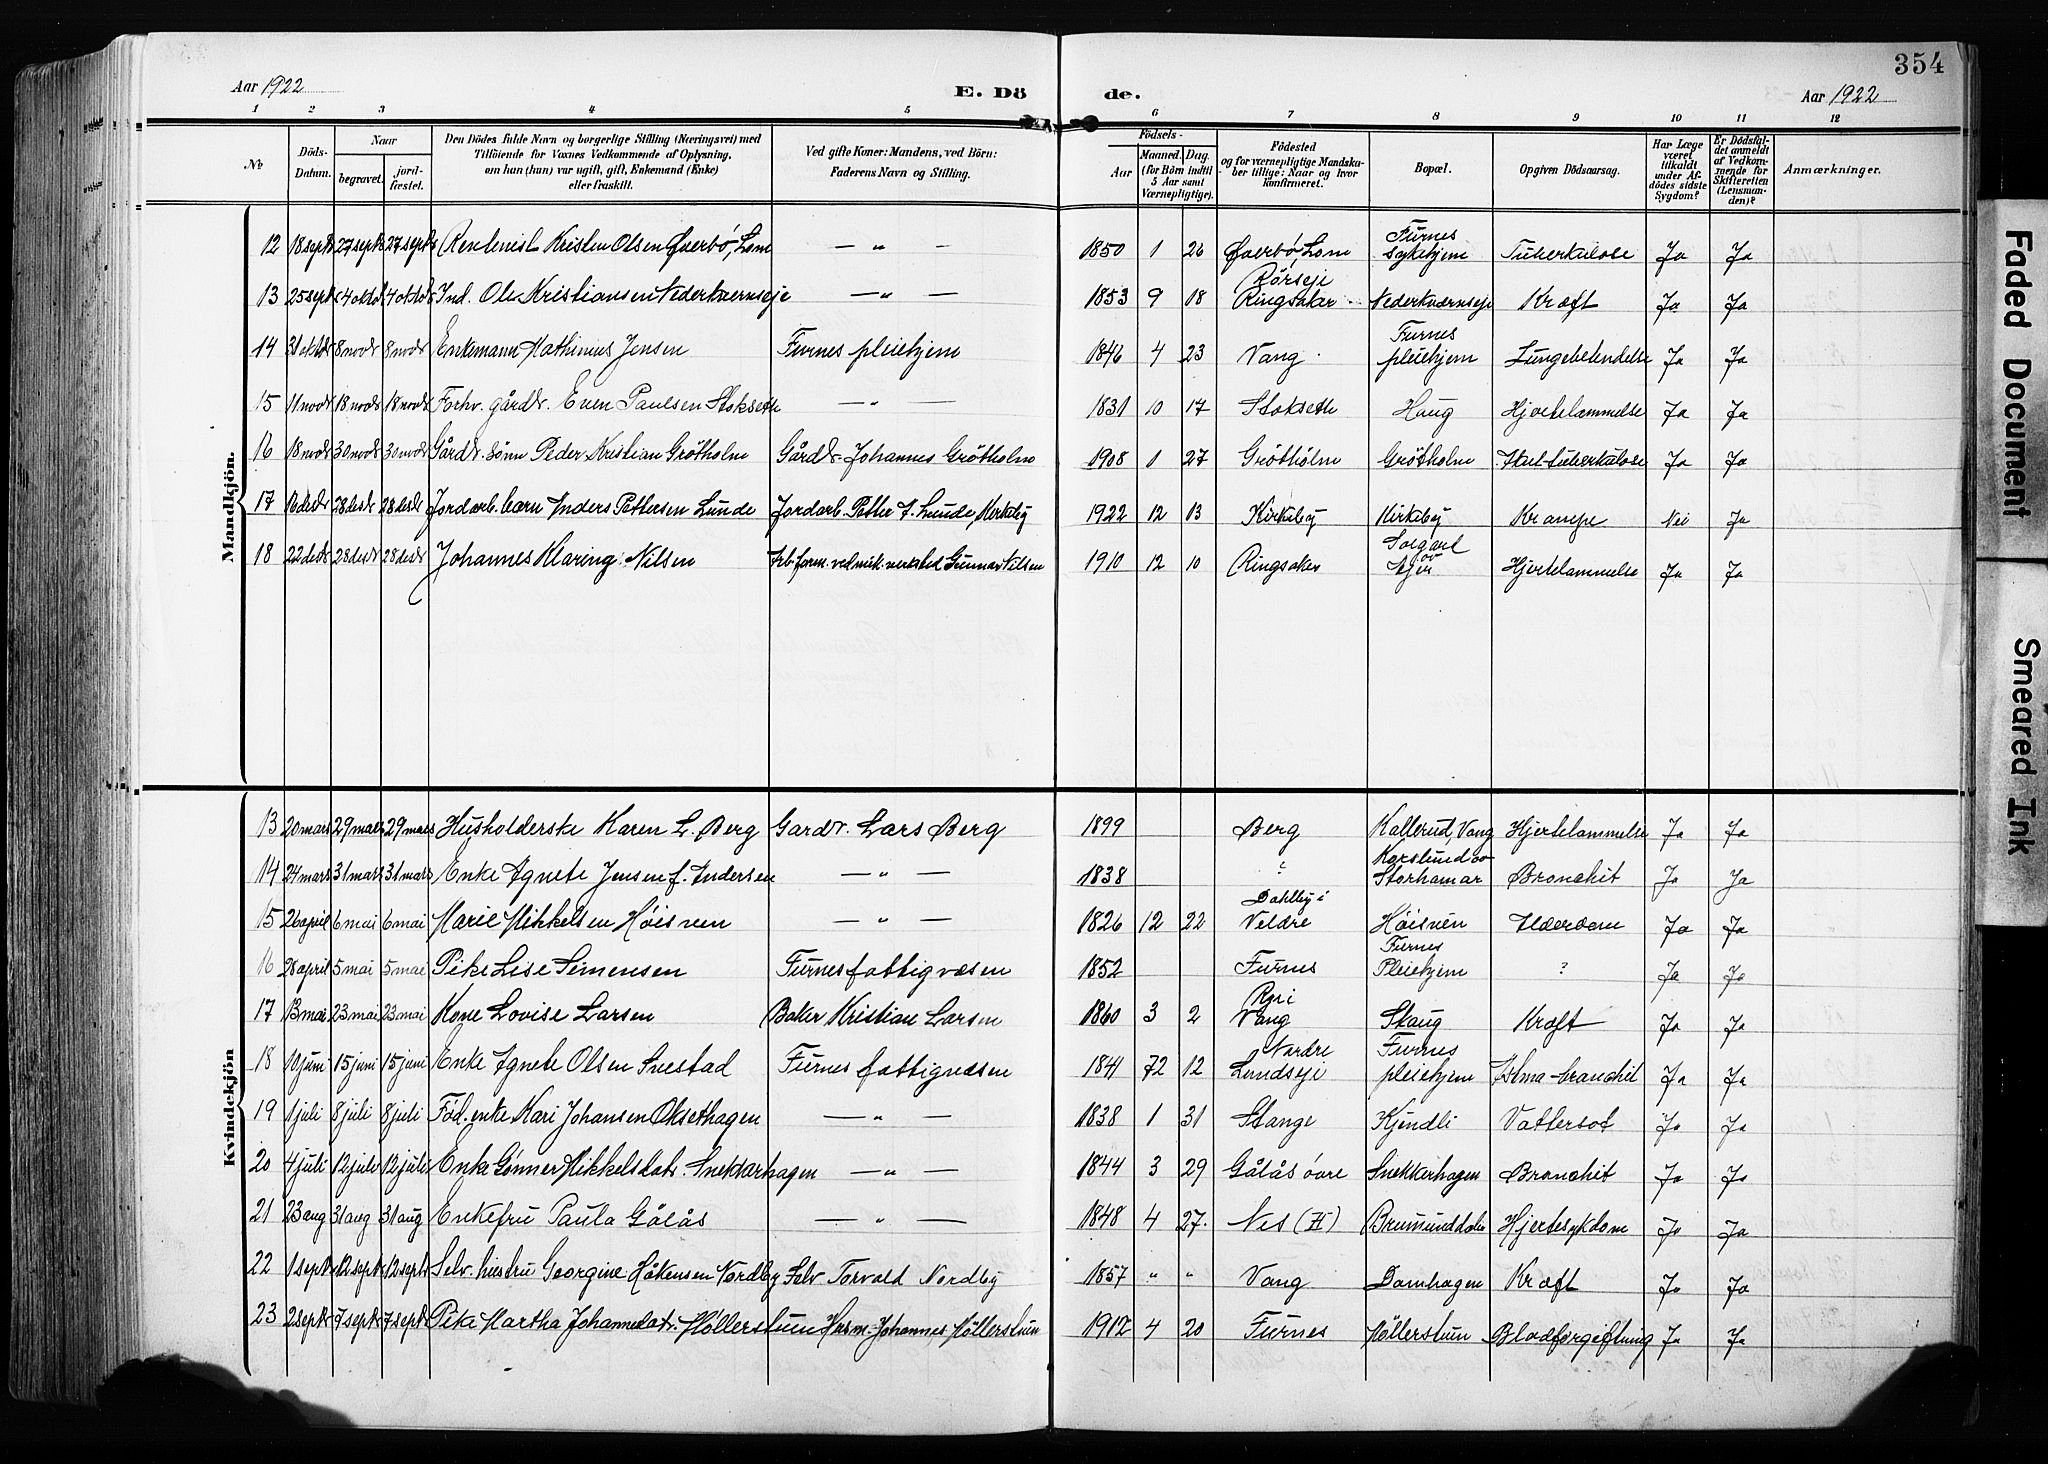 354
Aar 1922 E. Dö de. Aar 1922
1 2 3 4 5 6 7 8 9 10 11 12
No
Döds-Datum.
Naar
begravet.
jord-fæstet.
Den Dödes fulde Navn og borgerlige Stilling (Næringsvei) med
Tilföiende for Voxnes Vedkommende af Oplysning,
om hun (hun) var ugift, gift, Enkemand (Enke)
eller fraskilt.
Ved gifte Koner: Mandens, ved Börn:
Faderens Navn og Stilling.
Födsels-
Aar
Maaned. Dag.
(for Börn indtil
5 Aar samt
Værnepligtige).
Födested
og for værnepligtige Mandska-
ber tillige: Naar og hvor
konfirmeret.
Bopæl.
Opgiven Dödsaarsag.
Har Læge
været
tilkaldt
under Af-
dödes sidste
Sygdom?
Er Dödsfal-
det anmeldt
af Vedkom-
mende for
Skifteretten
(Lensman-
den)?
Anmærkninger.
Mandkjön.
12 18 septr 27 septr 27 septr Rentenist Kristen Olsen Øverbö, Lom — " — 1850 1 26 Øverbö, Lom Furnes sykehjem Tuberkulose Ja Ja
13 25 septr 4 oktbr 4 oktbr Ind. Ole Kristiansen Nederkvernseje — " — 1853 9 18 Rörseje Ringsaker Nederkværnseje Kræft Ja Ja
14 31 oktbr 8 novbr 8 novbr Enkemann Mathinius Jensen Furnes pleiehjem 1846 4 23 Vang Furnes pleiehjem Lungebetendelse Ja Ja
15 11 novbr 18 novbr 18 novbr Forhv. gårdbr. Even Paulsen Stokseth — " — 1831 10 17 Stokseth Haug Hjertelammelse Ja Ja
16 18 novbr 30 novbr 30 novbr Gårdbr. sönn Peder Kristian Grötholm Gårdbr. Johannes Grötholm 1908 1 27 Grötholm Grötholm tuberkulose Ja Ja
17 16 desbr 28 desbr 28 desbr Jordarb. barn Anders Pettersen Lunde Jordarb. Petter A. Lunde, Kirkeby 1922 12 13 Kirkeby Kirkeby Krampe Nei Ja
18 22 desbr 28 desbr 28 desbr Johannes Klaring Nilsen Arb. form. ved mek. verksted Gunnar Nilsen 1910 12 10 Ringsaker Hjertelammelse Ja Ja
Kvindekjön
13 20 mars 29 mars 29 mars Husholderske Karen L. Berg Gardbr. Lars Berg 1899 Berg Kallerud, Vang Hjertelammelse Ja Ja
14 24 mars 31 mars 31 mars Enke Agnete Jensen f. Andersen — " — 1838 ? Karslund av Storhamar Bronchit Ja Ja
15 26 april 6 mai 6 mai Marie Mikkelsen Höisven — " — 1826 12 22 Dahlby i Veldre Höisven Alderdom Ja Ja
16 28 april 5 mai 5 mai Pike Lise Simensen Furnes fattigvæsen 1852 Furnes Furnes Pleiehjem ? Ja Ja
17 13 mai 23 mai 23 mai Kone Lovise Larsen Baker Kristian Larsen 1860 3 2 Ryi Vang Skaug Kræft Ja Ja
18 10 juni 15 juni 15 juni Enke Agnete Olsen Svestad Furnes fattigvæsen 1841 12 12 Nordre Lundseje Furnes pleiehjem Astma-bronchit Ja Ja
19 1 juli 8 juli 8 juli Föd. enke Kari Johansen Oksethagen — " — 1838 1 31 Stange Kjendli Vattersot Ja Ja
20 4 juli 12 juli 12 juli Enke Gönner Mikkelsdatr. Snekkerhagen — " — 1844 3 29 Gålås övre Snekkerhagen Bronchit Ja Ja
21 23 aug 31 aug 31 aug Enkefru Paula Gålås — " — 1848 4 27. Nes (H) Brumunddalen Hjertesykdom Ja Ja
22 1 septr 12 septr 12 septr Selv. hustru Georgine Håkensen Nordby Selv. Torvald Nordby 1857 " " Vang Damhagen Kræft Ja Ja
23 2 septr 7 septr 7 septr Pike Martha Johannesdatr. Möllerstuen Husm. Johannes Möllerstuen 1912 4 20 Furnes Möllerstuen Blodforgiftning Ja Ja
Faded Document
Smeared Ink